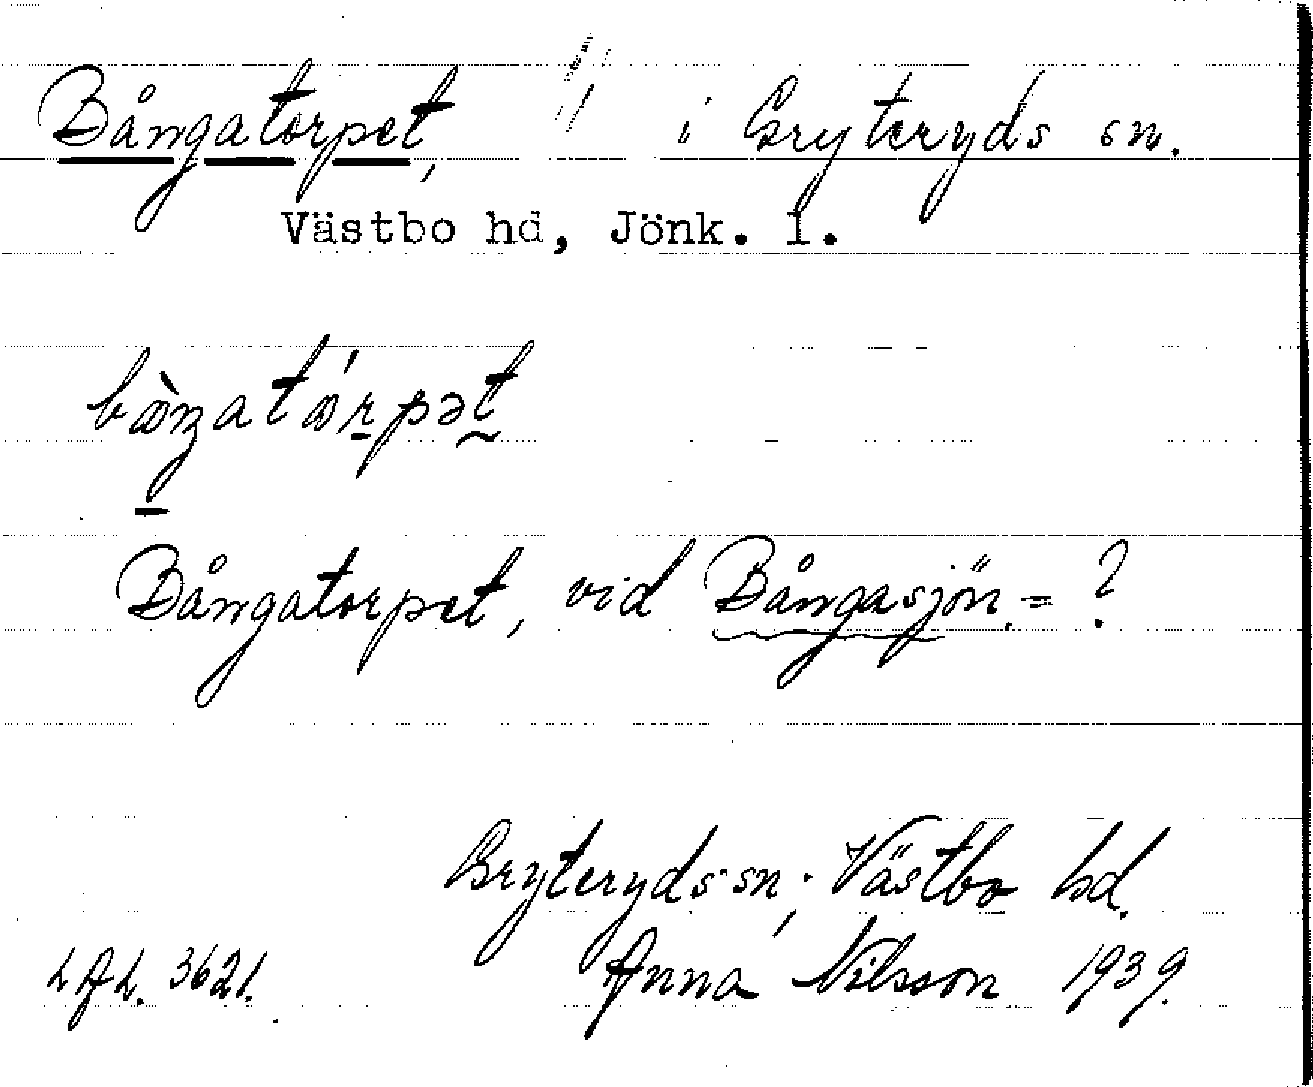 Bångatorpet, i Gryteryds sn.
Västbo hd, Jönk. l.
Bångatorpet, vid Bångasjön. = ?
Gryteryds sn; Västbo hd.
LAL. 3621. Anna Nilsson 1939.